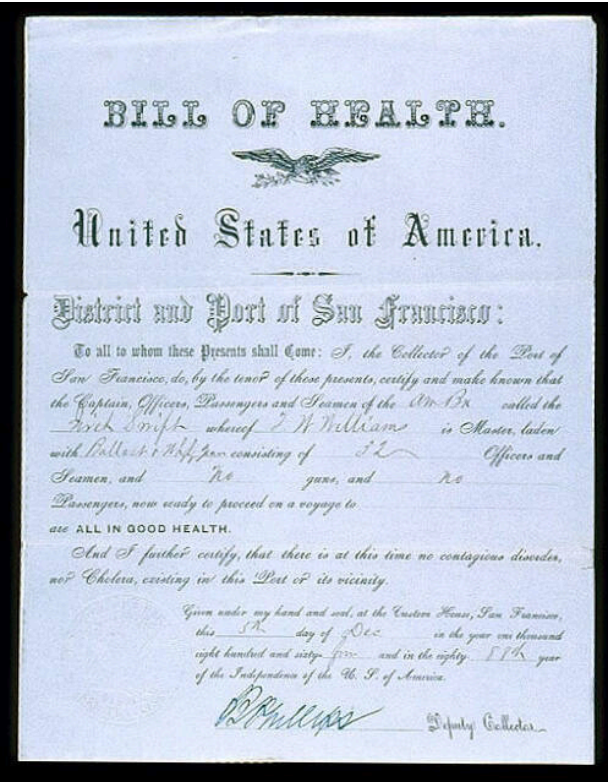 BILL OF HEALTH.
United States of America.
District and Port of San Francisco:
To all to whom these Presents shall Come: I, the Collector of the Port of
San Francisco, do, by the tenor of these presents, certify and make known that
the Captain, Officers, Passengers and Seamen of the Am Bk called the
Swift whereof W Williams is Master, laden
with Ballast & consisting of 32 Officers and
Seamen, and No guns, and No
Passengers, now ready to proceed on a voyage to
are ALL IN GOOD HEALTH.
And I further certify, that there is at this time no contagious disorder,
nor Cholera, existing in this Port or its vicinity.
Given under my hand and seal, at the Custom House, San Francisco,
this 5th day of Dec in the year one thousand
eight hundred and sixty- and in the eighty 88th year
of the Independence of the U. S. of America.
Phillips Deputy Collector